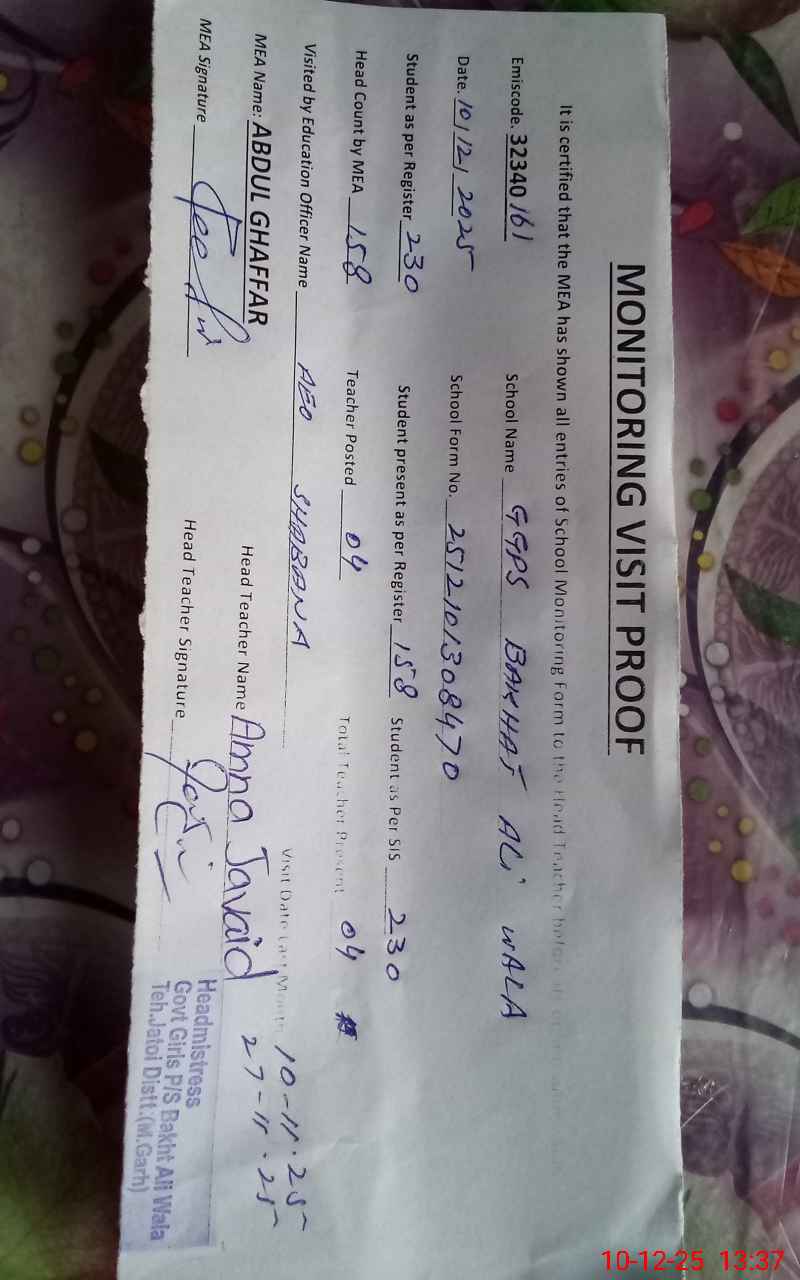 MONITORING VISIT PROOF
It is certified that the MEA has shown all entries of School Monitoring Form to the Head Teacher before
Emiscode. 32340161 School Name GGPS BAKHAT ALI WALA
Date. 10/12/2025 School Form No. 2512101308470
Student as per Register 230 Student present as per Register 158 Student as Per SIS 230
Head Count by MEA 158 Teacher Posted 04 Total Teacher Present 04
Visited by Education Officer Name AEO SHABANA Visit Date Last Month 10-11-25
27-11-25
MEA Name: ABDUL GHAFFAR Head Teacher Name Amna Javaid
MEA Signature Head Teacher Signature
Headmistress
Govt Girls P/S Bakht Ali Wala
Teh.Jatoi Distt.(M.Garh)
10-12-25 13:37